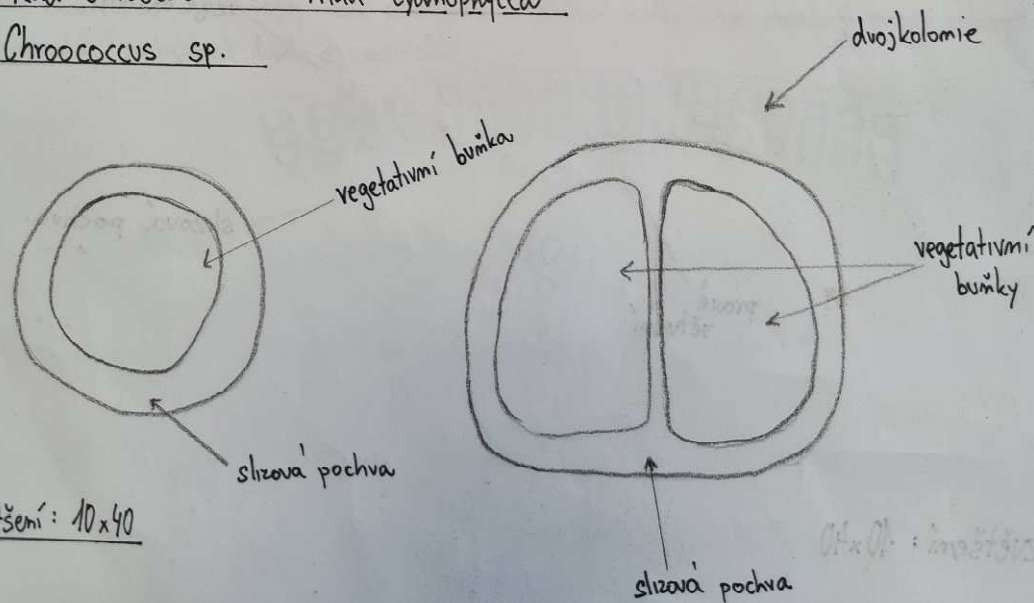 Chroococcus sp.
dvojkolomie
vegetativní buňka
vegetativní
buňky
slizová pochva
tšení: 10x40
slizová pochva